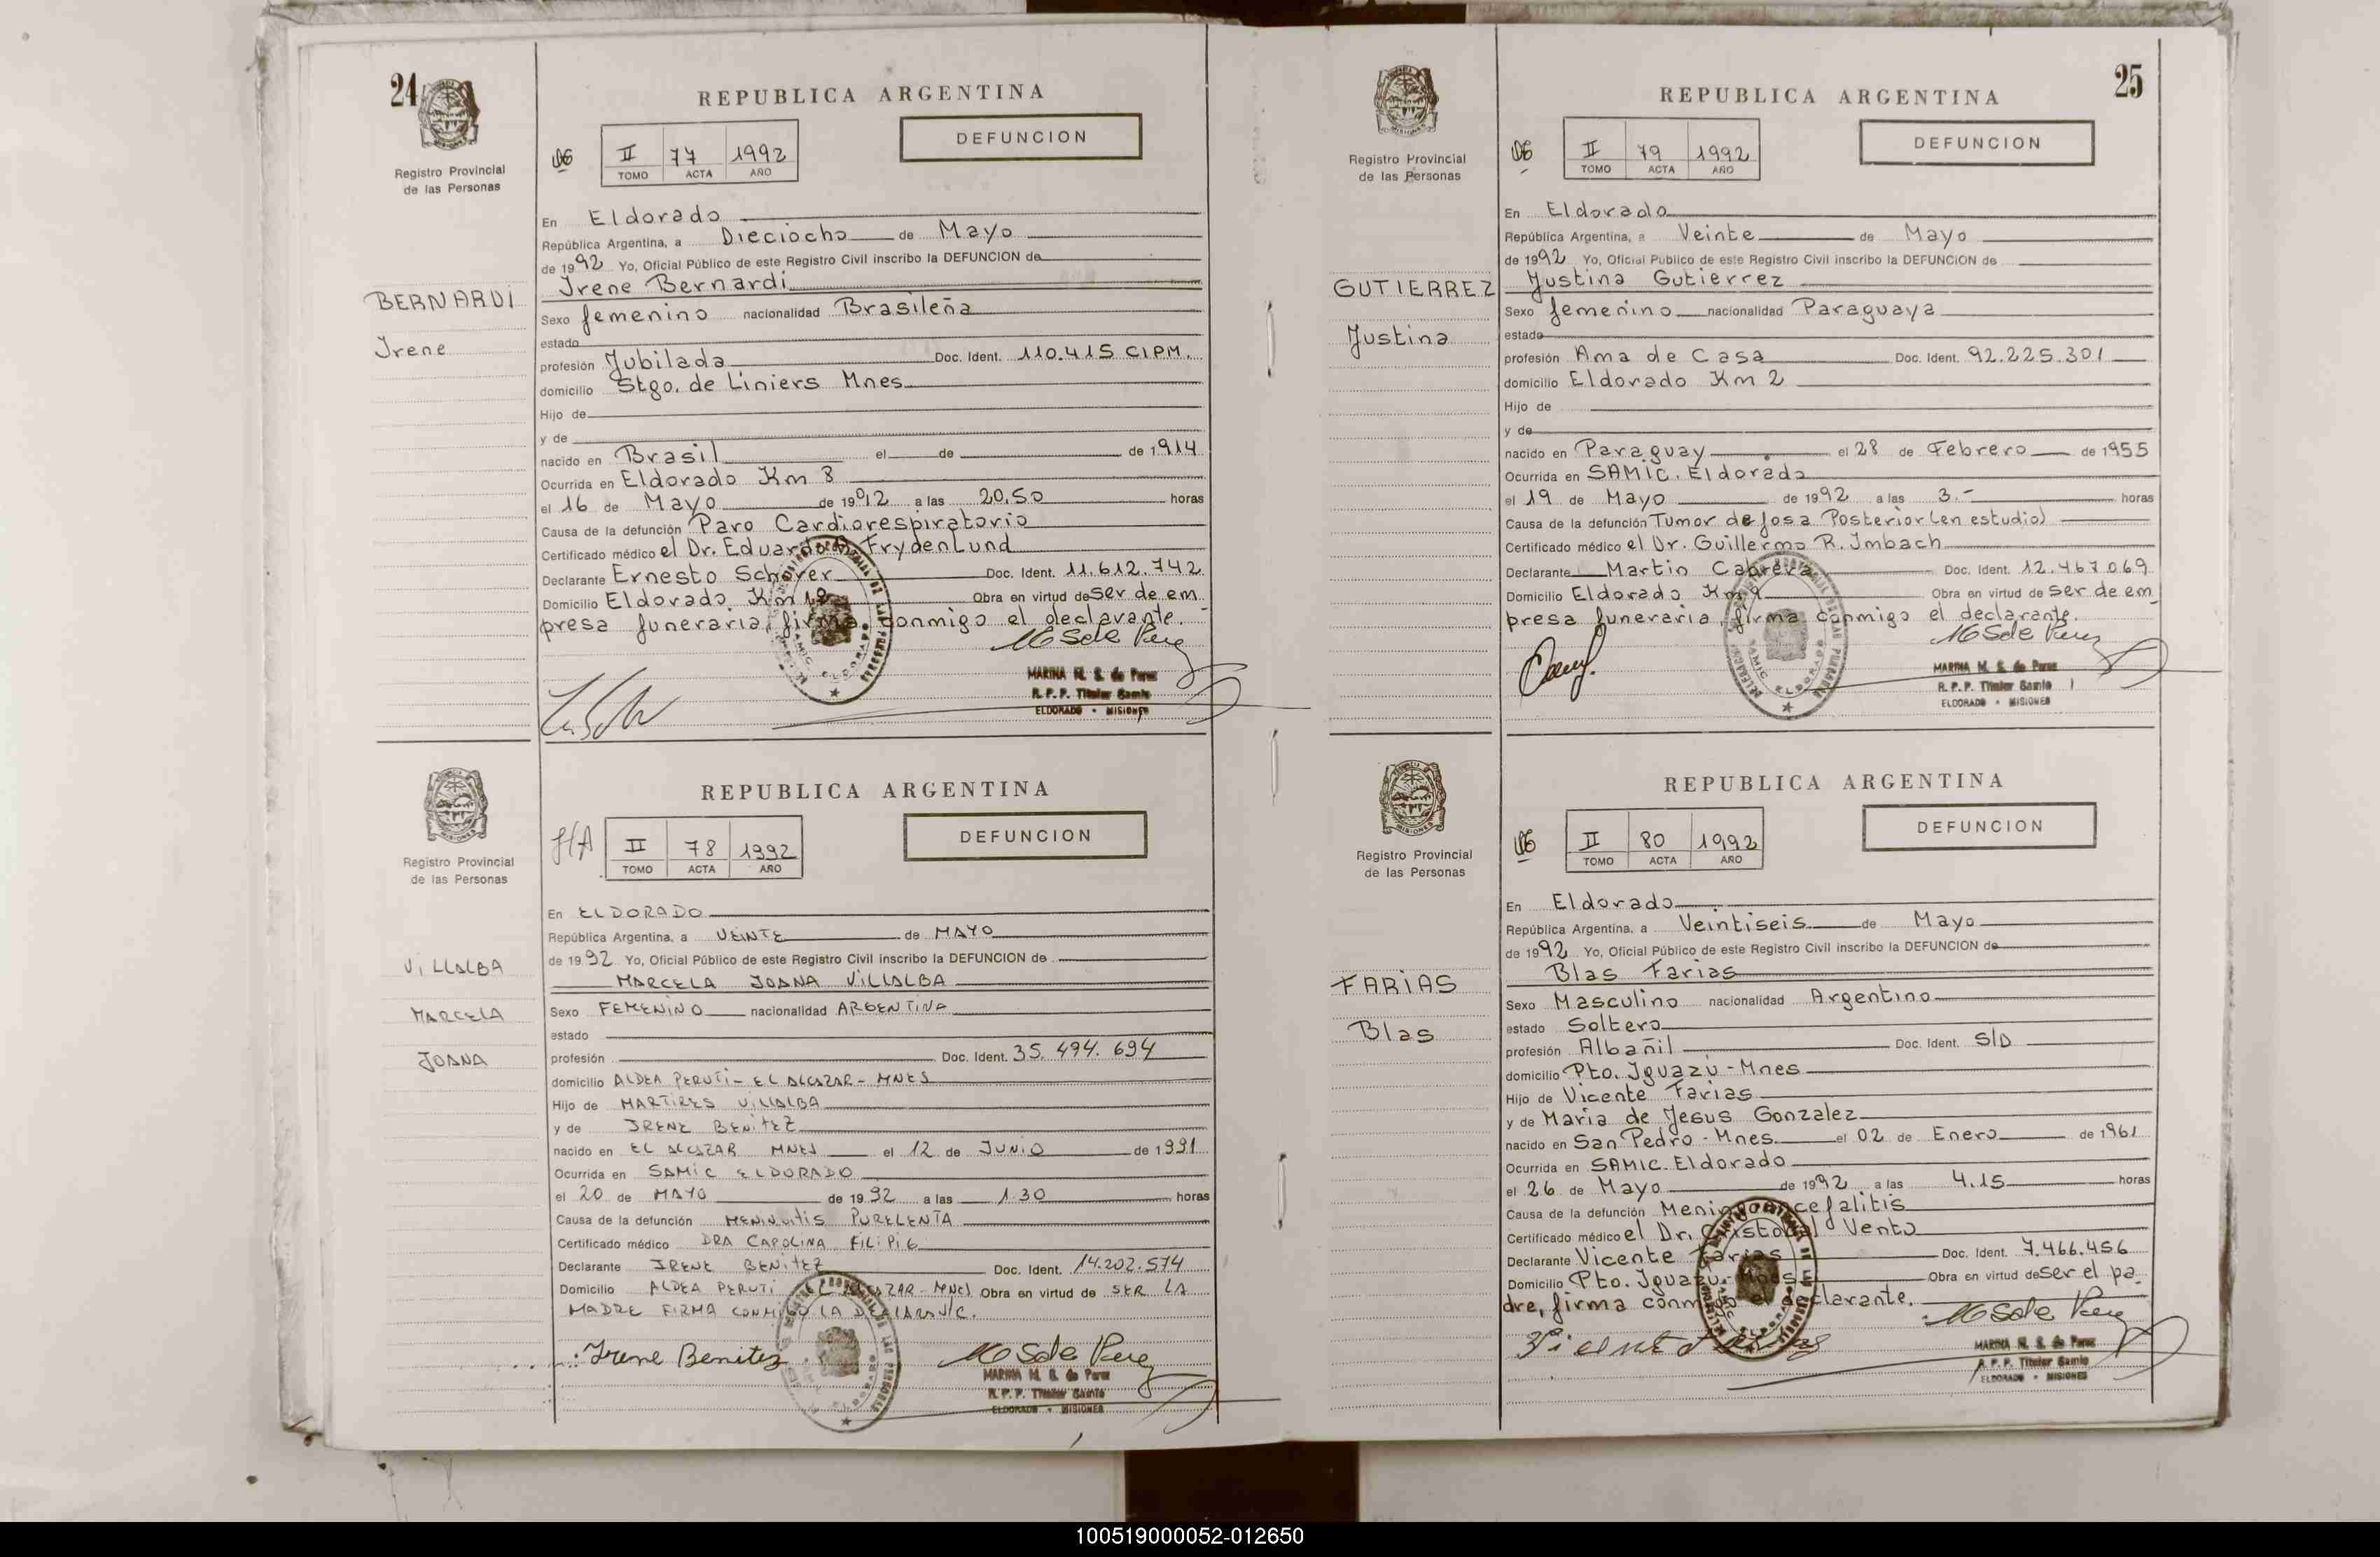 24
Registro Provincial
de las Personas
BERNARDI
Irene
REPUBLICA ARGENTINA
DEFUNCION
II 77 1992
TOMO ACTA AÑO
En Eldorado
República Argentina, a Dieciocho de Mayo
de 1992 Yo, Oficial Público de este Registro Civil inscribo la DEFUNCION de
Irene Bernardi
Sexo femenino nacionalidad Brasileña
estado
profesión Jubilada Doc. Ident. 110.415 CIPM.
domicilio Stgo. de Liniers Mnes
Hijo de
y de
nacido en Brasil el de de 1914
Ocurrida en Eldorado Km 8
el 16 de Mayo de 1992 a las 20.50 horas
Causa de la defunción Paro Cardiorespiratorio
Certificado médico el Dr. Eduardo FrydenLund
Declarante Ernesto Schorer Doc. Ident. 11.612.742
Domicilio Eldorado Km Obra en virtud de ser de em
presa funeraria, firma conmigo el declarante.
MARINA M. S. de Perez
R. P. P. Titular Samic
ELDORADO - MISIONES
Registro Provincial
de las Personas
VILLALBA
MARCELA
JOANA
REPUBLICA ARGENTINA
DEFUNCION
II 78 1992
TOMO ACTA AÑO
En ELDORADO
República Argentina, a VEINTE de MAYO
de 1992 Yo, Oficial Público de este Registro Civil inscribo la DEFUNCION de
MARCELA JOANA VILLALBA
Sexo FEMENINO nacionalidad ARGENTINA
estado
profesión Doc. Ident. 35.494.694
domicilio ALDEA PERUTI - EL ALCAZAR - MNES
Hijo de MARTIRES VILLALBA
y de IRENE BENITEZ
nacido en EL ALCAZAR MNES el 12 de JUNIO de 1991
Ocurrida en SAMIC ELDORADO
el 20 de MAYO de 1992 a las 1.30 horas
Causa de la defunción MENINGITIS PURELENTA
Certificado médico DRA CAROLINA
Declarante IRENE BENITEZ Doc. Ident. 14.202.574
Domicilio ALDEA PERUTI EL ALCAZAR - MNES Obra en virtud de SER LA
MADRE FIRMA CONMIGO LA DECLARANTE.
Irene Benitez
MARINA M. S. de Perez
R. P. P. Titular Samic
ELDORADO - MISIONES
25
Registro Provincial
de las Personas
GUTIERREZ
Justina
REPUBLICA ARGENTINA
DEFUNCION
II 79 1992
TOMO ACTA AÑO
En Eldorado
República Argentina, a Veinte de Mayo
de 1992 Yo, Oficial Público de este Registro Civil inscribo la DEFUNCION de
Justina Gutierrez
Sexo femenino nacionalidad Paraguaya
estado
profesión Ama de Casa Doc. Ident. 92.225.301
domicilio Eldorado Km 2
Hijo de
y de
nacido en Paraguay el 28 de Febrero de 1955
Ocurrida en SAMIC. Eldorado
el 19 de Mayo de 1992 a las 3.- horas
Causa de la defunción Tumor de fosa Posterior (en estudio)
Certificado médico el Dr. Guillermo R. Imbach
Declarante Martin Cabrera Doc. Ident. 12.467.069
Domicilio Eldorado Km 9 Obra en virtud de ser de em
presa funeraria, firma conmigo el declarante.
MARINA M. S. de Perez
R. P. P. Titular Samic
ELDORADO - MISIONES
Registro Provincial
de las Personas
FARIAS
Blas
REPUBLICA ARGENTINA
DEFUNCION
II 80 1992
TOMO ACTA AÑO
En Eldorado
República Argentina, a Veintiseis de Mayo
de 1992 Yo, Oficial Público de este Registro Civil inscribo la DEFUNCION de
Blas Farias
Sexo Masculino nacionalidad Argentino
estado Soltero
profesión Albañil Doc. Ident. S/D
domicilio Pto. Iguazú - Mnes
Hijo de Vicente Farias
y de Maria de Jesus Gonzalez
nacido en San Pedro - Mnes el 02 de Enero de 1961
Ocurrida en SAMIC. Eldorado
el 26 de Mayo de 1992 a las 4.15 horas
Causa de la defunción Meningoencefalitis
Certificado médico el Dr. Cristobal Vento
Declarante Vicente Farias Doc. Ident. 7.466.456
Domicilio Pto. Iguazu - Mnes Obra en virtud de ser el pa
dre, firma conmigo el declarante.
MARINA M. S. de Perez
R. P. P. Titular Samic
ELDORADO - MISIONES
100519000052-012650